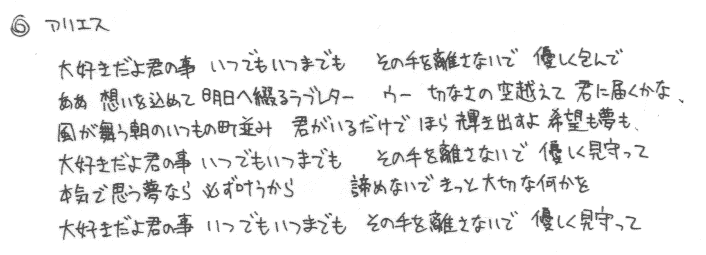 ⑥ アリエス
大好きだよ君の事 いつでもいつまでも その手を離さないで 優しく包んで
ああ 想いを込めて 明日へ綴るラブレター ウー 切なさの空越えて 君に届くかな、
風が舞う朝のいつもの町並み 君がいるだけで ほら 輝き出すよ 希望も夢も、
大好きだよ君の事 いつでもいつまでも その手を離さないで 優しく見守って
本気で思う夢なら 必ず叶うから 諦めないで きっと大切な何かを
大好きだよ君の事 いつでもいつまでも その手を離さないで 優しく見守って